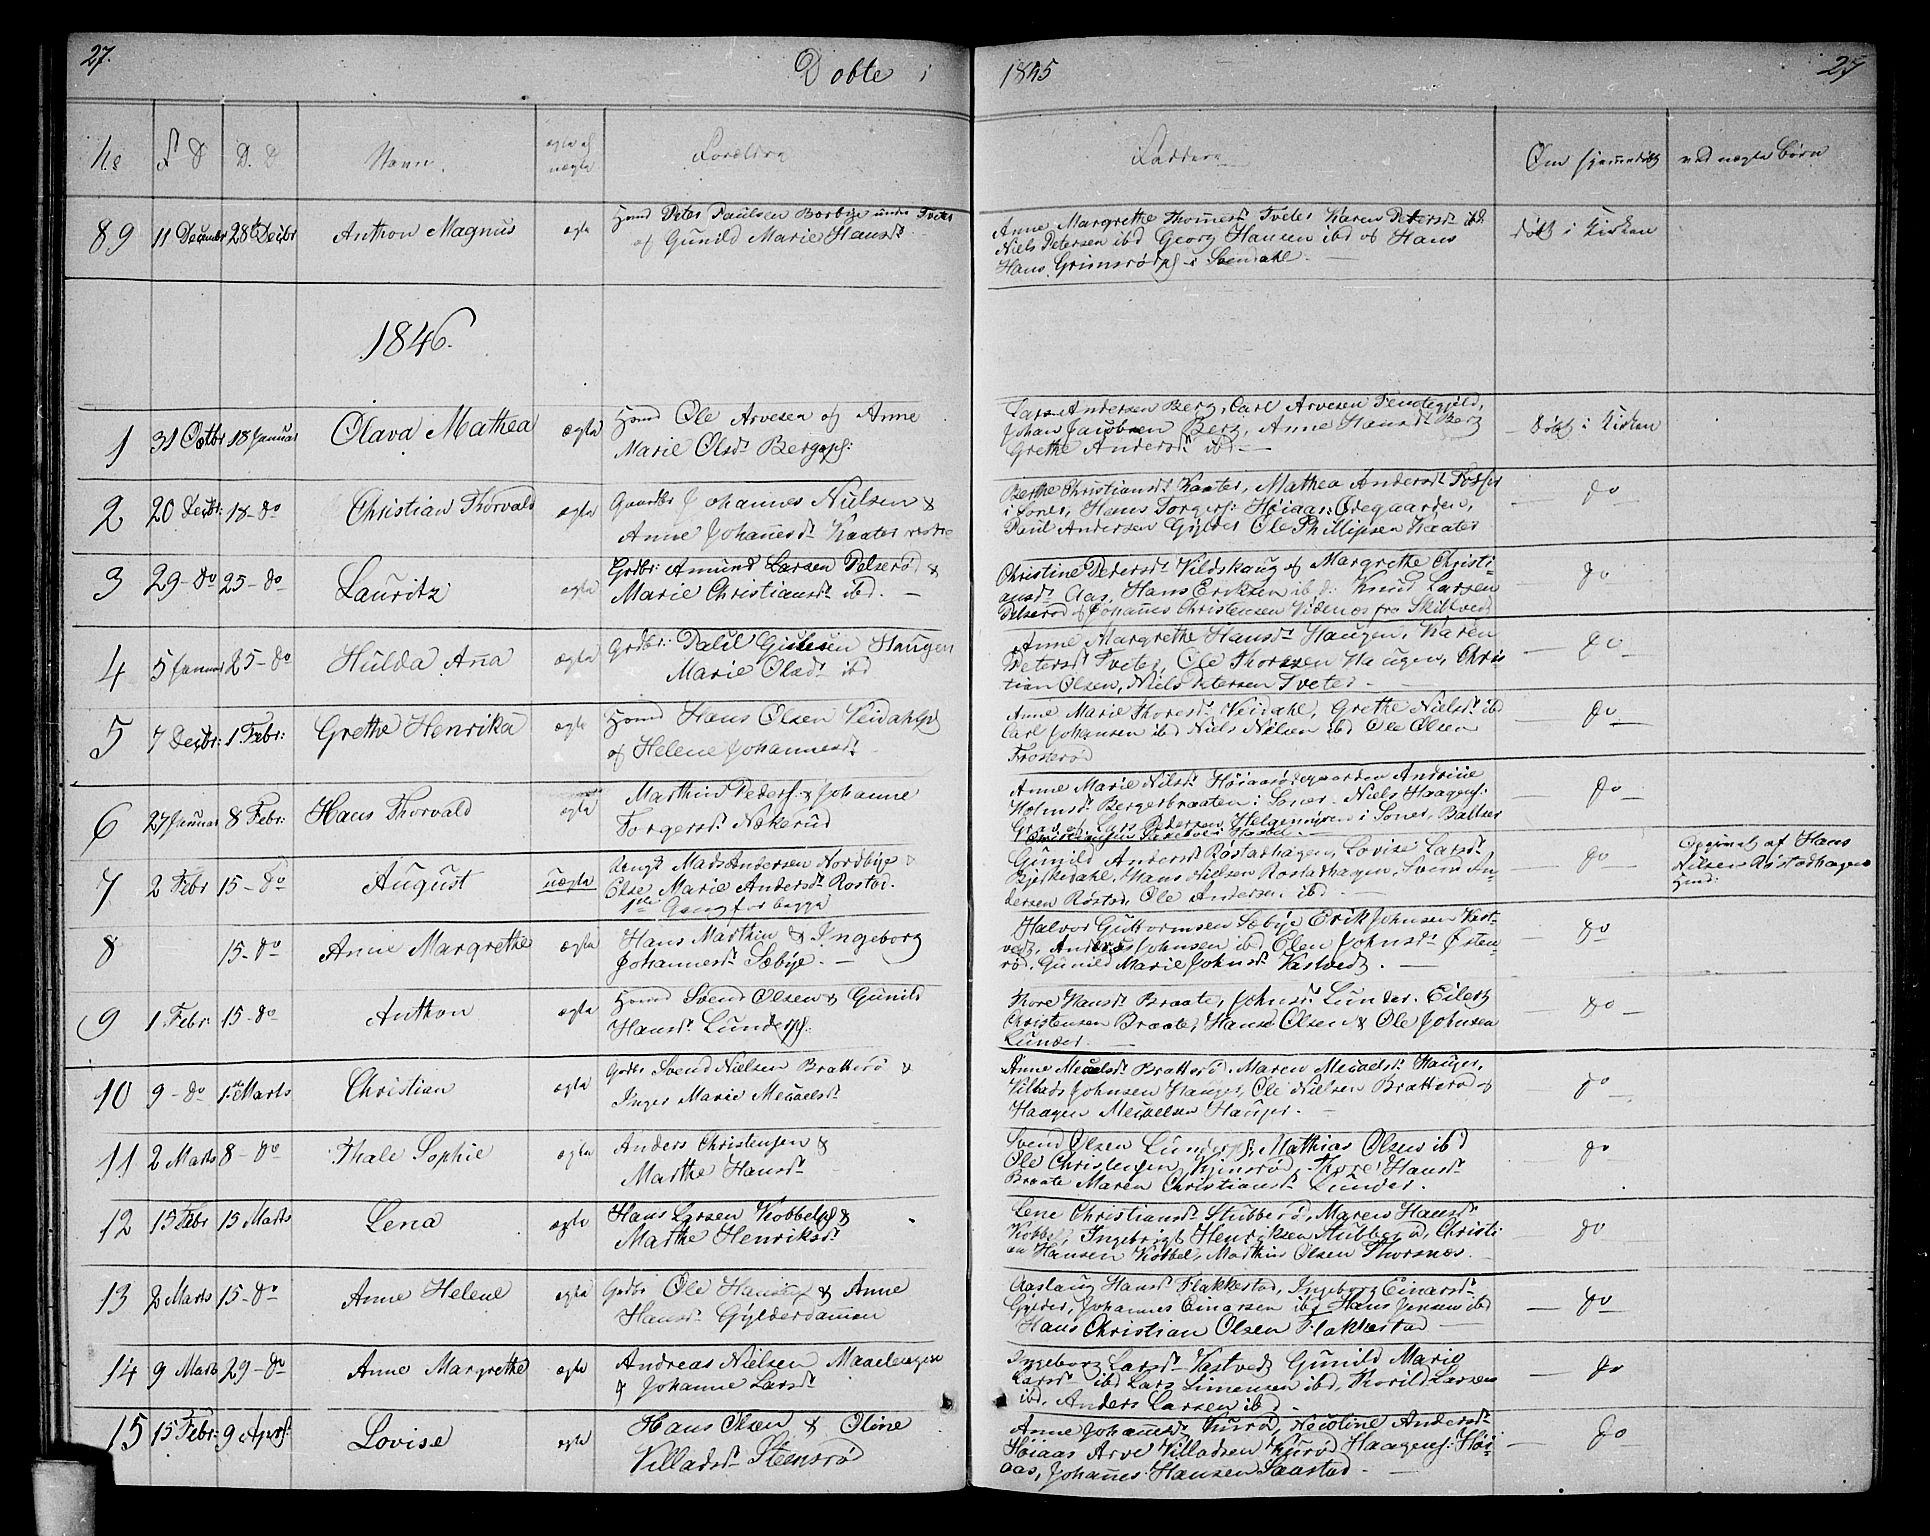 27.
Døbte i
1845
27
No
F. D
D. D
Navn
ægte el
uægte
Forældre
Faddere
Om hjemmedøbt
ved uægte Børn
89 11 Decembr 28de Decbr Anthon Magnus ægte
Hmd Peter Paulsen Borbye under Tveter
og Gunild Marie Hansdr
Anne Margrethe Thomesdr Tveter Karen Petersdr ibd
Niels Petersen ibd Georg Hansen ibd og Hans
Hans. Grimsrød i Svendahl. —
døbt i Kirken
1846.
1 31 Octbr 18 Januar Olava Mathea ægte
Hmd Ole Arvesen og Anne
Marie Olsdr Berg
Lars Andersen Berg, Carl Arvesen
Johan Jacobsen Berg, Anne Hansdr Berg
Grethe Andersdr ibd —
— døbt i Kirken
2 20 Decbr: 18 - do Christian Thorvald ægte
Gaardbr Johannes Nielsen &
Anne Johanesdr Kaater vestre
Berthe Christiansdr Kaater, Mathea Andersdr Fosser
i Soner, Hans Torgers: Høiaas Ødegaarden,
Paul Andersen Gylder Ole Phillipsen Kaater
— do
3 29 - do 25 - do Lauritz ægte
Grdbr: Amund Larsen Delserød &
Marie Christiansdr ibd. —
Christine Pedersdr Vildskaug og Margrethe Christi-
ansdr Aas, Hans Eriksen ibd: Knud Larsen
Delserød og Johannes Christensen Videnes fra Skibtvedt
— do
4 5 Januar 25 - do Hulda Ana ægte
Grdbr: Paul Haugen
Marie Olsdr ibd
Anne Margrethe Hansdr Haugen, Karen
Petersdr Tveter, Ole Thoresen Haugen, Chris
tian Olsen, Niels Petersen Tveter. —
— do
5 7 Decbr: 1 Febr: Grethe Henrika ægte
Hmd Hans Olsen Veidahl
og Helene Johannesdr
Anne Marie Thoresdr Veidahl, Grethe Nielsdr ibd
Carl Johansen ibd Niels Nielsen ibd Ole Olsen
Frosterød
— do
6 27 Januar 8 Febr: Hans Thorvald ægte
Marthin Peders: & Johanne
Torgersdr Nækerud
Anne Marie Nilsdr Høiaasødegaarden Andrine
Holmsdr Bergerbraaten i Soner. Niels Haagens:
Lars Pedersen Helgennseen i Soner, Baltser
— do —
7 2 Febr 15 - do August uægte
Ungk Mads Andersen Nordbye &
Olse Marie Andersdr Rostad.
1ste Gang for begge
Gunild Andersdr Rostadhagen, Lovise Larsdr
Bjerkedahl, Hans Nielsen Rostadhagen, Svend An-
dersen Rostad, Ole Andersen ibd
— do
Opgivet af Hans
Nilsen Rostadhagen
Hmd:
8 15 - do Anne Margrethe ægte
Hans Marthin & Ingeborg
Johannesdr Sæbye. —
Halvor Guttormsen Sæbye Erik Johnsen Kast-
vedt, Anders Johnsen ibd Elen Johnsdr Østen
rød, Gunild Marie Johnsdr Kastvedt. —
do
9 1 Febr: 15 - do Anthon ægte
Hmd Svend Olsen & Gunild
Hansdr Lunder
Thore Hansdr Braate, Johnsdr Lunder. Eilert
Christensen Braate, Hans Olsen & Ole Johnsen
Lunder. —
— do —
10 9 - do 1ste Marts Christian ægte
Grdbr Svend Nielsen Bratterø &
Inger Marie Micaelsdr
Anne Micaelsdr Bratterød, Maren Micaelsdr Hauger,
Villads Johnsen Hauger, Ole Nielsen Bratterød og
Haagen Micaelsen Hauger. —
do
11 2 Marts 8 - do Thale Sophie ægte
Anders Christensen &
Marthe Hansdr
Svend Olsen Lunder Mathias Olsen ibd
Ole Christensen Kjinsrød, Thore Hansdr
Braate Maren Christiansdr Lunder.
do
12 15 Febr 15 Marts Lena ægte
Hans Larsen Kobbel &
Marthe Henriksdr
Lene Christiansdr Stubberød, Maren Hansdr
Kobbel, Ingebrigt Henriksen Stubberød, Christi
an Hansen Kobbel, Mathis Olsen Thorsnes.
do
13 2 Marts 15 - do Anne Helene ægte
Grdbr Ole Hansen & Anne
Hansdr Gylderdammen
Aaslaug Hansdr Flakkestad, Ingeborg Einarsdr
Gylder, Johannes Einarsen ibd Hans Jensen ibd
Hans Christian Olsen Flakkestad —
— do
14 9 Marts 29 - do Anne Margrethe ægte
Andreas Nielsen Maaelengen
& Johanne Larsdr
Ingeborg Larsdr Kastvedt Gunild Marie
Larsdr ibd Lars Simensen ibd, Thorild Larsen
ibd, Anders Larsen ibd.
do
15 15 Febr: 9 April Lovise ægte
Hans Olsen & Oline
Villadsdr Steensrød
Anne Johannesdr Kurød, Nicoline Andersdr
Høiaas Arve Villadsen Kurød Haagens: Høi
aas, Johannes Hansen Saastad. —
— do